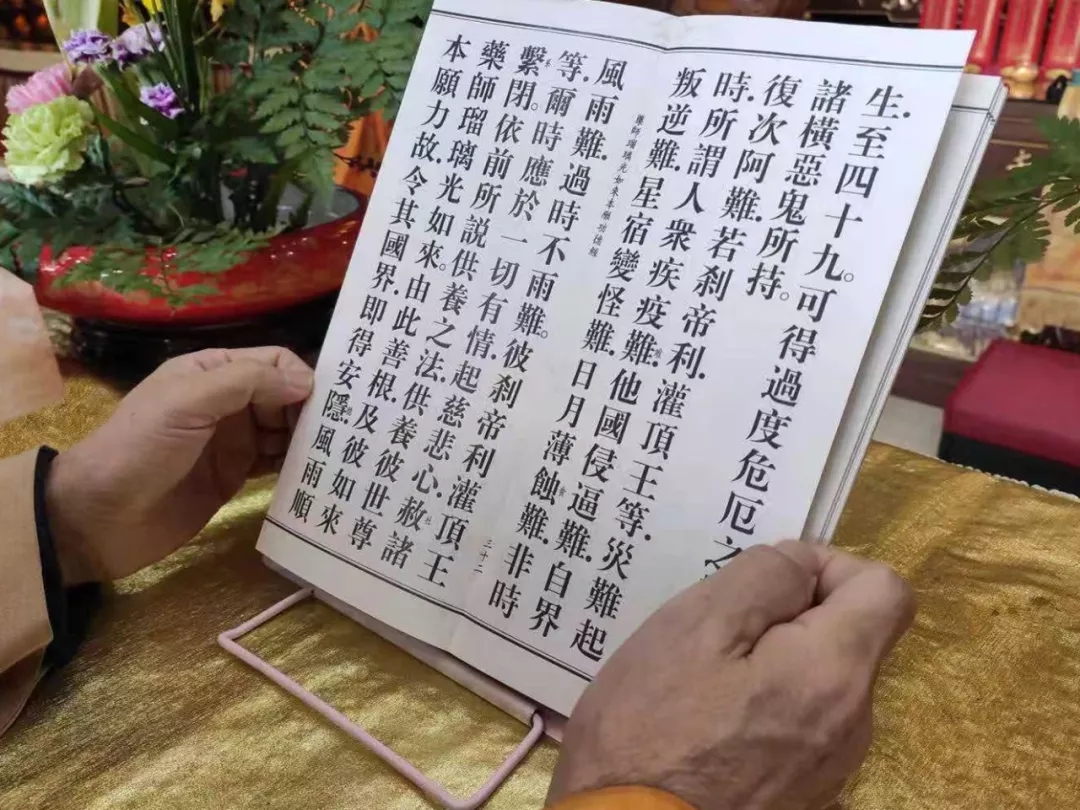 生.至四十九。可得過度危厄之
諸橫惡鬼所持。
復次阿難.若剎帝利.灌頂王等.災難起
時.所謂人眾疾疫難.他國侵逼難.自界
叛逆難.星宿變怪難.日月薄蝕難.非時
藥師瑠璃光如來本願功德經
三十二
風雨難.過時不雨難。彼剎帝利灌頂王
等.爾時應於一切有情.起慈悲心.赦諸
繫閉。依前所說供養之法.供養彼世尊
藥師瑠璃光如來。由此善根.及彼如來
本願力故.令其國界.即得安隱.風雨順